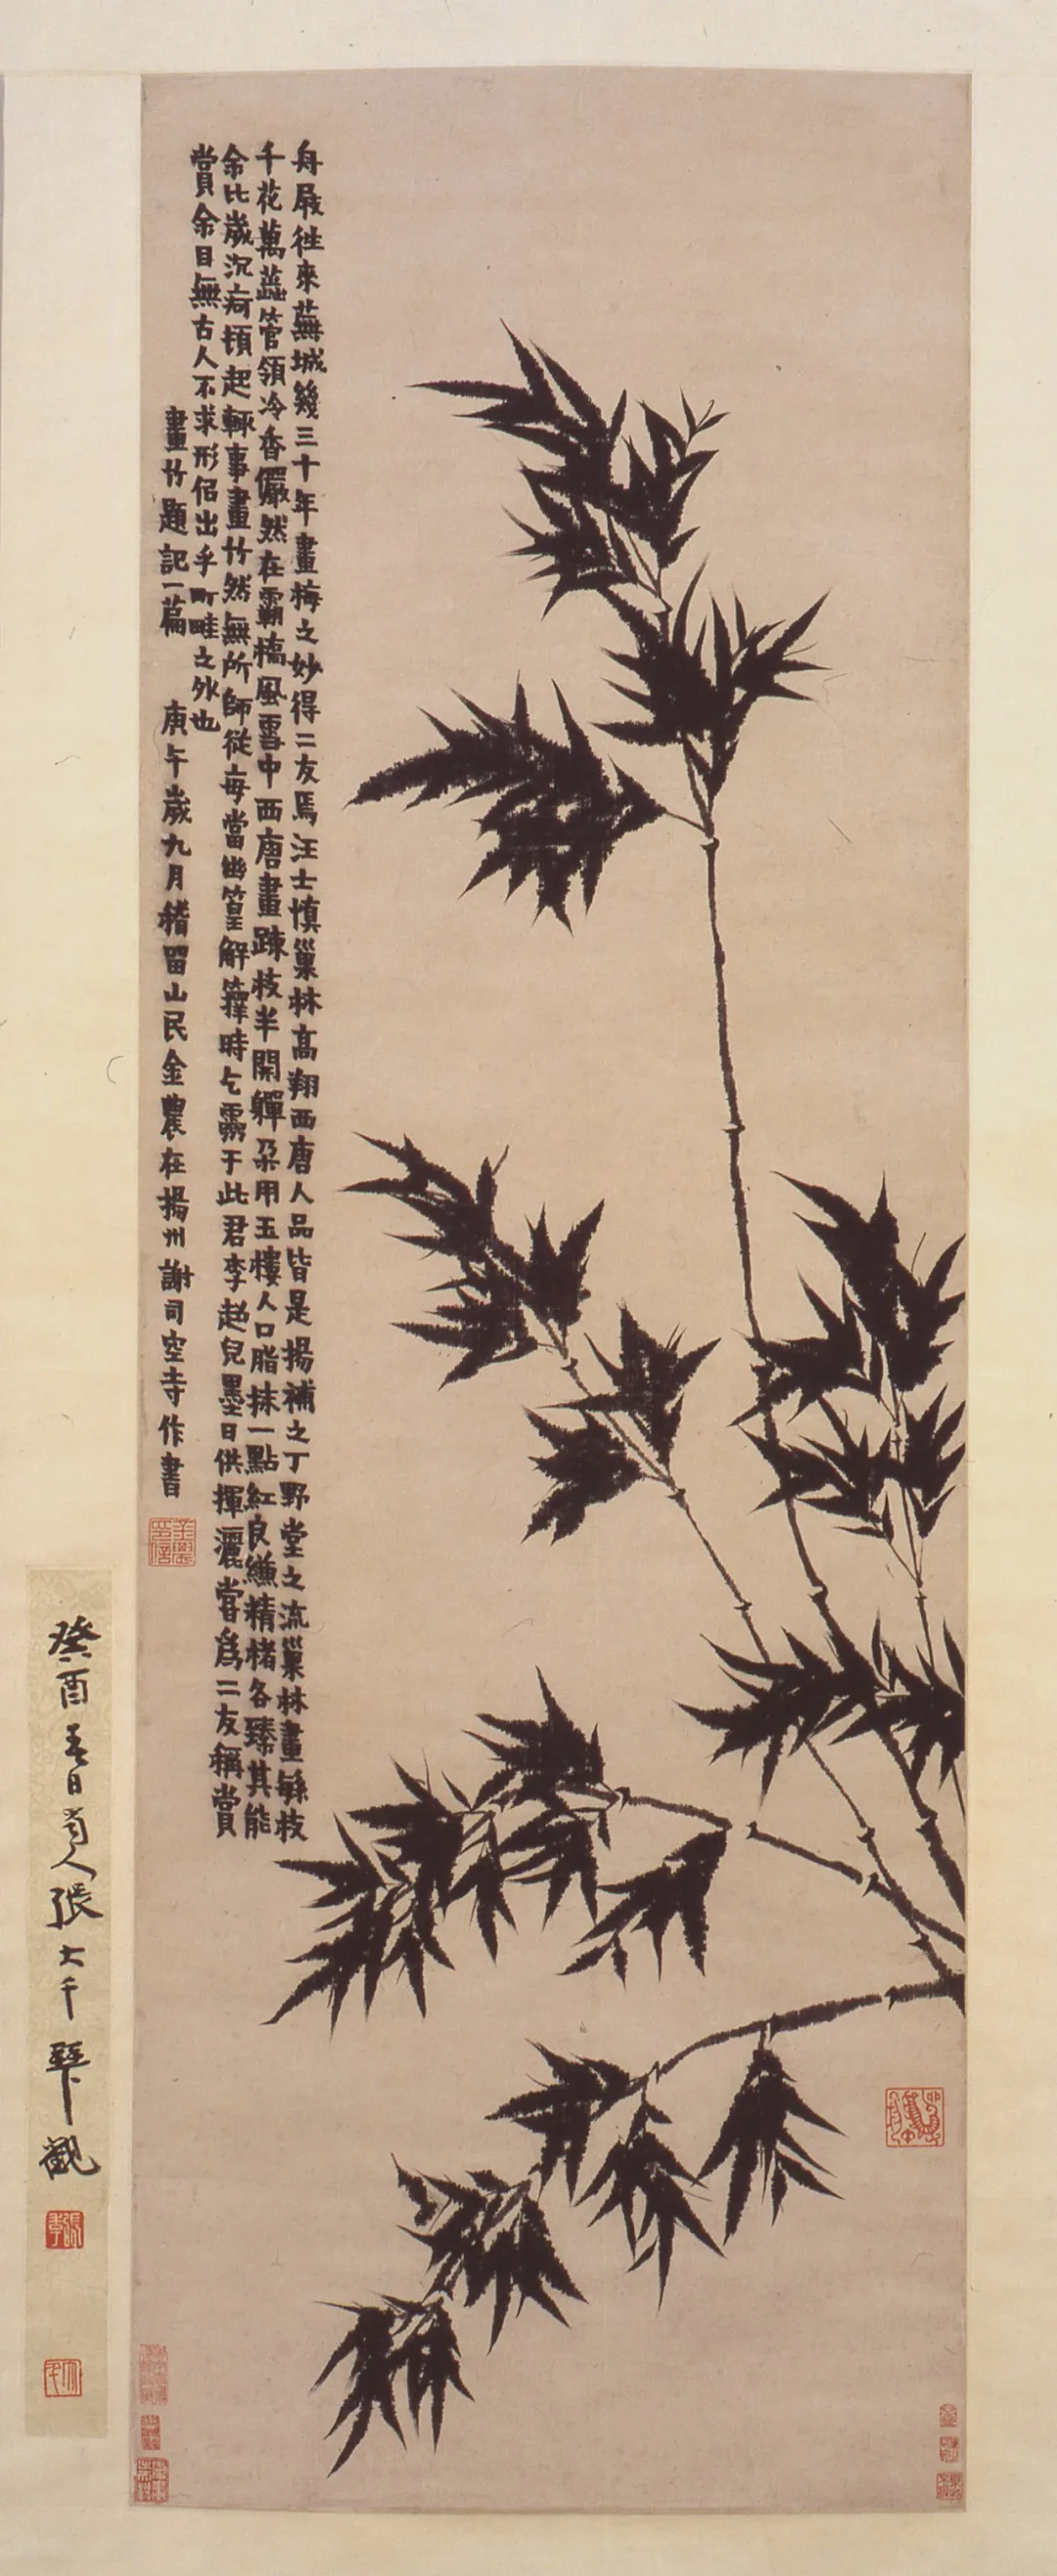 舟屐往來蕪城幾三十年畫梅之妙得二友焉汪士慎巢林高翔西唐人品皆是揚補之丁野堂之流巢林畫緐枝
千花萬蕊管領冷香儼然在灞橋風雪中西唐畫踈枝半開嚲朶用玉樓人口脂抹一點紅良縑精楮各臻其能
余比歲沉疴頓起輒事畫竹然無所師從每當幽篁解籜時乞靈于此君李趙兒墨日供揮灑嘗爲二友稱賞
賞余目無古人不求形侣出乎町畦之外也
畫竹題記一篇 庚午歲九月稽留山民金農在揚州謝司空寺作書
癸酉 日 人張大千 觀